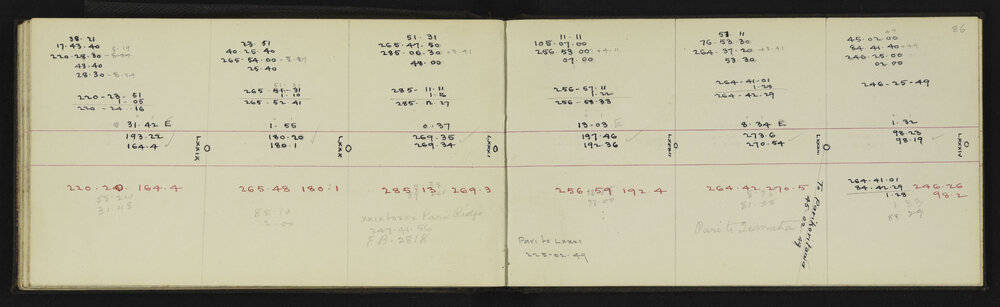 38. 21
17. 43. 40
220. 28. 30
43. 40
28. 30
220 - 23 - 51
1. 05
220 - 24. 16
31. 42 E
193. 22
164. 4
LXXIX
220. 20 164. 4
31. 48
23. 51
40. 25. 40
265. 54. 00
25. 40
265 51 31
1. 10
265. 52. 41
1. 55
180. 20
180. 1
LXXX
265. 48 180. 1
88. 10
2. 00
51. 31
265. 47. 50
285. 06. 30 +3. 41
48. 00
285 - 11. 11
1. 16
285 - 12. 27
0. 37
269. 35
269. 34
LXXXI
285. 13 269. 3
xxix to xxx Pari Ridge
247. 41. 56
F.B. 2818
11. 11
105. 07. 00
256. 53. 00 +4. 11
07. 00
256 - 57. 11
1. 22
256 - 58. 33
13 - 03 E
197. 46
192. 36
LXXXII
256. 59 192. 4
77. 00
Pari to LXXXI
225 - 02. 49
57 11
76 - 53 30
264. 37. 20 +3. 41
53. 30
264 - 41 - 01
1. 28
264 - 42. 29
8. 34 E
273. 6
270. 54
LXXXIII
264. 42. 270. 5
81. 28
Pari to Temaha
To Parikorikowa
45. 02. 49
86
45. 02. 00
84. 41. 40
246. 25. 00
02. 00
246 - 25 - 49
1. 32
98. 23
98. 19
LXXXIV
264. 41. 01
84. 42. 29
1. 28
246. 26
98. 2
1. 33
88. 29